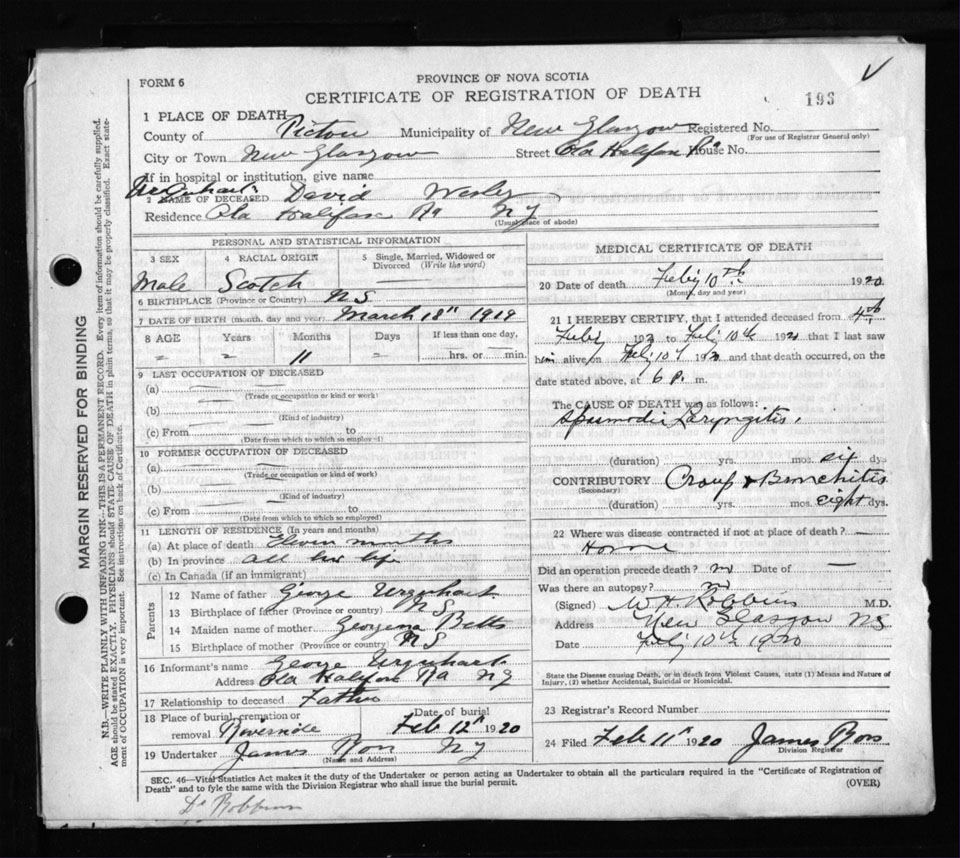 FORM 6
PROVINCE OF NOVA SCOTIA
CERTIFICATE OF REGISTRATION OF DEATH
193
1 PLACE OF DEATH
County of Pictou Municipality of New Glasgow Registered No.
(For use of Registrar General only)
City or Town New Glasgow Street Old Halifax Rd House No.
If in hospital or institution, give name
2 NAME OF DECEASED Urquhart David Wesley
Residence Old Halifax Rd N G
(Usual place of abode)
PERSONAL AND STATISTICAL INFORMATION
3 SEX 4 RACIAL ORIGIN 5 Single, Married, Widowed or Divorced (Write the word)
Male Scotch
6 BIRTHPLACE (Province or Country) N S
7 DATE OF BIRTH (month, day and year) March 18th 1919
8 AGE Years Months Days If less than one day,
11 hrs. or min.
9 LAST OCCUPATION OF DECEASED
(a)
(Trade or occupation or kind of work)
(b)
(Kind of industry)
(c) From to
(Date from which to which so employed)
10 FORMER OCCUPATION OF DECEASED
(a)
(Trade or occupation or kind of work)
(b)
(Kind of industry)
(c) From to
(Date from which to which so employed)
11 LENGTH OF RESIDENCE (In years and months)
(a) At place of death Eleven months
(b) In province all his life
(c) In Canada (if an immigrant)
Parents
12 Name of father George Urquhart
13 Birthplace of father (Province or country) N S
14 Maiden name of mother Georgena Betts
15 Birthplace of mother (Province or country) N S
16 Informant's name George Urquhart
Address Old Halifax Rd N G
17 Relationship to deceased Father
18 Place of burial, cremation or removal Riverside Date of burial Feb 12th 1920
19 Undertaker James Ross N G
(Name and Address)
MEDICAL CERTIFICATE OF DEATH
20 Date of death Feby 10th 1920
(Month, day and year)
21 I HEREBY CERTIFY, that I attended deceased from 4th
Feby 192 to Feby 10th 192 that I last saw
him alive on Feby 10th 192 and that death occurred, on the
date stated above, at 6 p. m.
The CAUSE OF DEATH was as follows:
Spasmodic Laryngitis.
(duration) yrs. mos. six dys
CONTRIBUTORY Croup & Bronchitis
(Secondary)
(duration) yrs. mos. eight dys.
22 Where was disease contracted if not at place of death?
Home
Did an operation precede death? no Date of —
Was there an autopsy? no
(Signed) W. H. Robbins M.D.
Address New Glasgow NS
Date Feby 10th 1920
State the Disease causing Death, or in death from Violent Causes, state (1) Means and Nature of
Injury, (2) whether Accidental, Suicidal or Homicidal.
23 Registrar's Record Number
24 Filed Feb 11th 1920 James Ross
Division Registrar
SEC. 46—Vital Statistics Act makes it the duty of the Undertaker or person acting as Undertaker to obtain all the particulars required in the "Certificate of Registration of
Death" and to fyle the same with the Division Registrar who shall issue the burial permit.
(OVER)
Dr Robbins
MARGIN RESERVED FOR BINDING
N.B.—WRITE PLAINLY WITH UNFADING INK—THIS IS A PERMANENT RECORD. Every item of information should be carefully supplied.
AGE should be stated EXACTLY. PHYSICIANS should STATE CAUSE OF DEATH in plain terms, so that it may be properly classified. Exact state-
ment of OCCUPATION is very important. See instructions on back of Certificate.